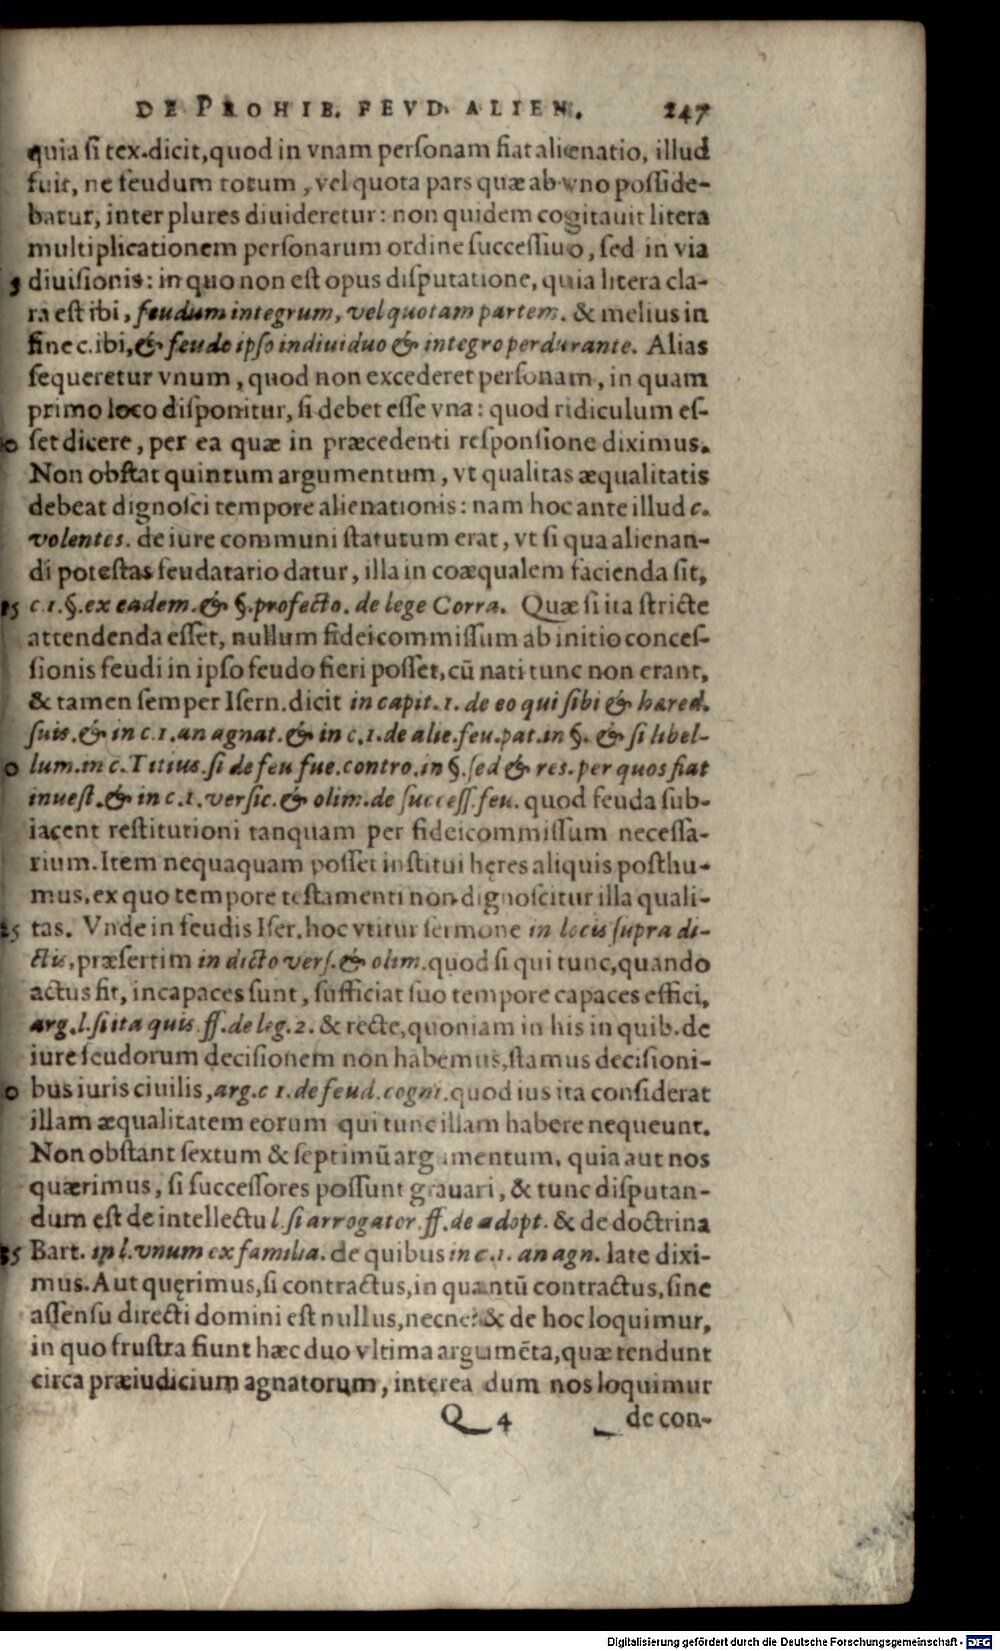 DE PROHIB. FEVD. ALIEN. 247
quia si tex. dicit, quod in vnam personam fiat alienatio, illud
fuit, ne feudum totum, vel quota pars quæ ab vno posside-
batur, inter plures diuideretur: non quidem cogitauit litera
multiplicationem personarum ordine successiuo, sed in via
5 diuisionis: in quo non est opus disputatione, quia litera cla-
ra est ibi, feudum integrum, vel quotam partem. & melius in
fine c. ibi, & feudo ipso indiuiduo & integro perdurante. Alias
sequeretur vnum, quod non excederet personam, in quam
primo loco disponitur, si debet esse vna: quod ridiculum es-
10 set dicere, per ea quæ in præcedenti responsione diximus.
Non obstat quintum argumentum, vt qualitas æqualitatis
debeat dignosci tempore alienationis: nam hoc ante illud c.
volentes. de iure communi statutum erat, vt si qua alienan-
di potestas feudatario datur, illa in coæqualem facienda sit,
15 c. 1. §. ex eadem. & §. profecto. de lege Corra. Quæ si ita stricte
attendenda esset, nullum fideicommissum ab initio conces-
sionis feudi in ipso feudo fieri posset, cū nati tunc non erant,
& tamen semper Isern. dicit in capit. 1. de eo qui sibi & hæred.
suis. & in c. 1. an agnat. & in c. 1. de alie. feu. pat. in §. & si libel-
0 lum. in c. Titius. si de feu fue. contro. in §. sed & res. per quos fiat
inuest. & in c. 1. versic. & olim. de success. feu. quod feuda sub-
iacent restitutioni tanquam per fideicommissum necessa-
rium. Item nequaquam posset institui hęres aliquis posthu-
mus, ex quo tempore testamenti non dignoscitur illa quali-
25 tas. Vnde in feudis Iser. hoc vtitur sermone in locis supra di-
ctis, præsertim in dicto vers. & olim. quod si qui tunc, quando
actus fit, incapaces sunt, sufficiat suo tempore capaces effici,
arg. l. si ita quis ff. de leg. 2. & recte, quoniam in his in quib. de
iure feudorum decisionem non habemus, stamus decisioni-
0 bus iuris ciuilis, arg. c 1. de feud. cogni. quod ius ita considerat
illam æqualitatem eorum qui tunc illam habere nequeunt.
Non obstant sextum & septimū argumentum, quia aut nos
quærimus, si successores possunt grauari, & tunc disputan-
dum est de intellectu l. si arrogator. ff. de adopt. & de doctrina
35 Bart. in l. vnum ex familia. de quibus in c. 1. an agn. late dixi-
mus. Aut quęrimus, si contractus, in quantū contractus, sine
assensu directi domini est nullus, necne? & de hoc loquimur,
in quo frustra fiunt hæc duo vltima argumēta, quæ tendunt
circa præiudicium agnatorum, interea dum nos loquimur
Q 4 de con-
Digitalisierung gefördert durch die Deutsche Forschungsgemeinschaft - DFG